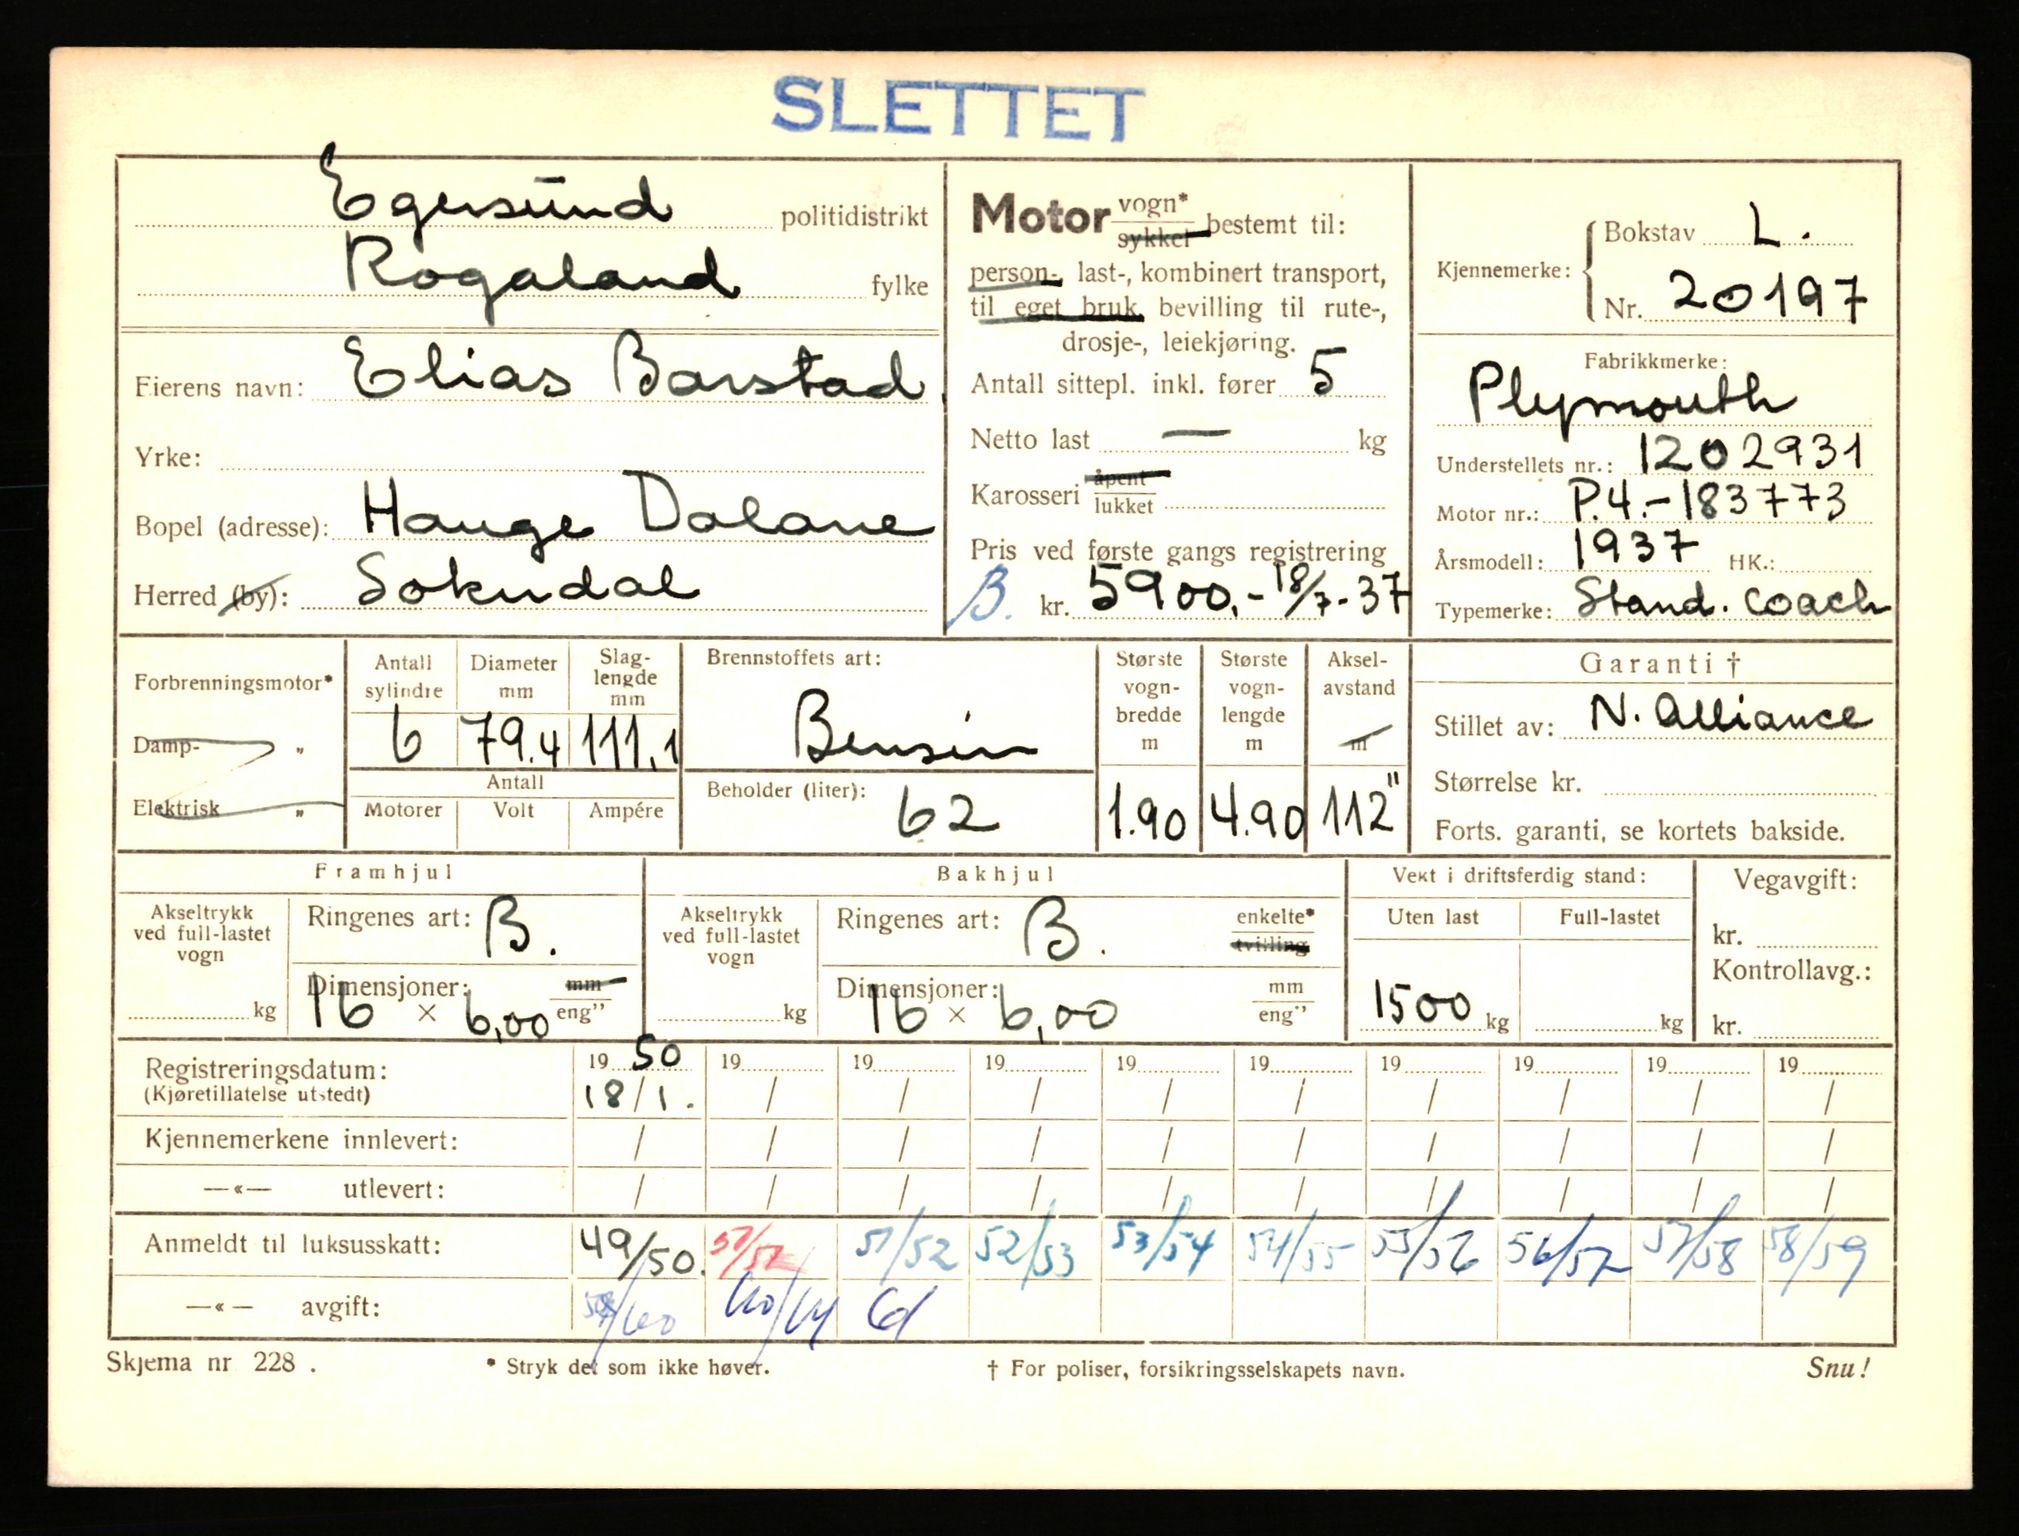 SLETTET
Egersund politidistrikt
Rogaland fylke
Eierens navn: Elias Barstad
Yrke:
Bopel (adresse): Hauge Dalane
Herred (by): Sokndal
Motor vogn* sykkel bestemt til:
person-, last-, kombinert transport,
til eget bruk, bevilling til rute-,
drosje-, leiekjøring.
Antall sittepl. inkl. fører 5
Netto last — kg
Karosseri åpent lukket
Pris ved første gangs registrering
B. kr. 5900,- 18/7-37
Kjennemerke: Bokstav L.
Nr. 20197
Fabrikkmerke:
Plymouth
Understellets nr.: 1202931
Motor nr.: P.4.-183773
Årsmodell: 1937 HK.:
Typemerke: Stand. coach
Forbrenningsmotor*
Damp- „
Elektrisk „
Antall sylindre 6
Diameter mm 79.4
Slaglengde mm 111,1
Antall
Motorer Volt Ampére
Brennstoffets art:
Bensin
Beholder (liter): 62
Største vogn-bredde m 1.90
Største vogn-lengde m 4.90
Aksel-avstand m 112"
Garanti †
Stillet av: N. Alliance
Størrelse kr.
Forts. garanti, se kortets bakside.
Framhjul
Akseltrykk ved full-lastet vogn kg
Ringenes art: B.
Dimensjoner: mm eng"
16 × 6,00
Bakhjul
Akseltrykk ved full-lastet vogn kg
Ringenes art: B. enkelte* tvilling
Dimensjoner: mm eng"
16 × 6,00
Vekt i driftsferdig stand:
Uten last Full-lastet
1500 kg kg
Vegavgift:
kr.
Kontrollavg.:
kr.
Registreringsdatum: 19 50 19 19 19 19 19 19 19 19 19
(Kjøretillatelse utstedt) 18/1. / / / / / / / / /
Kjennemerkene innlevert: / / / / / / / / / /
—«— utlevert: / / / / / / / / / /
Anmeldt til luksusskatt: 49/50. 51/52 52/53 53/54 54/55 55/56 56/57 57/58 58/59
—«— avgift: 61
Skjema nr 228 .
* Stryk det som ikke høver.
† For poliser, forsikringsselskapets navn.
Snu!